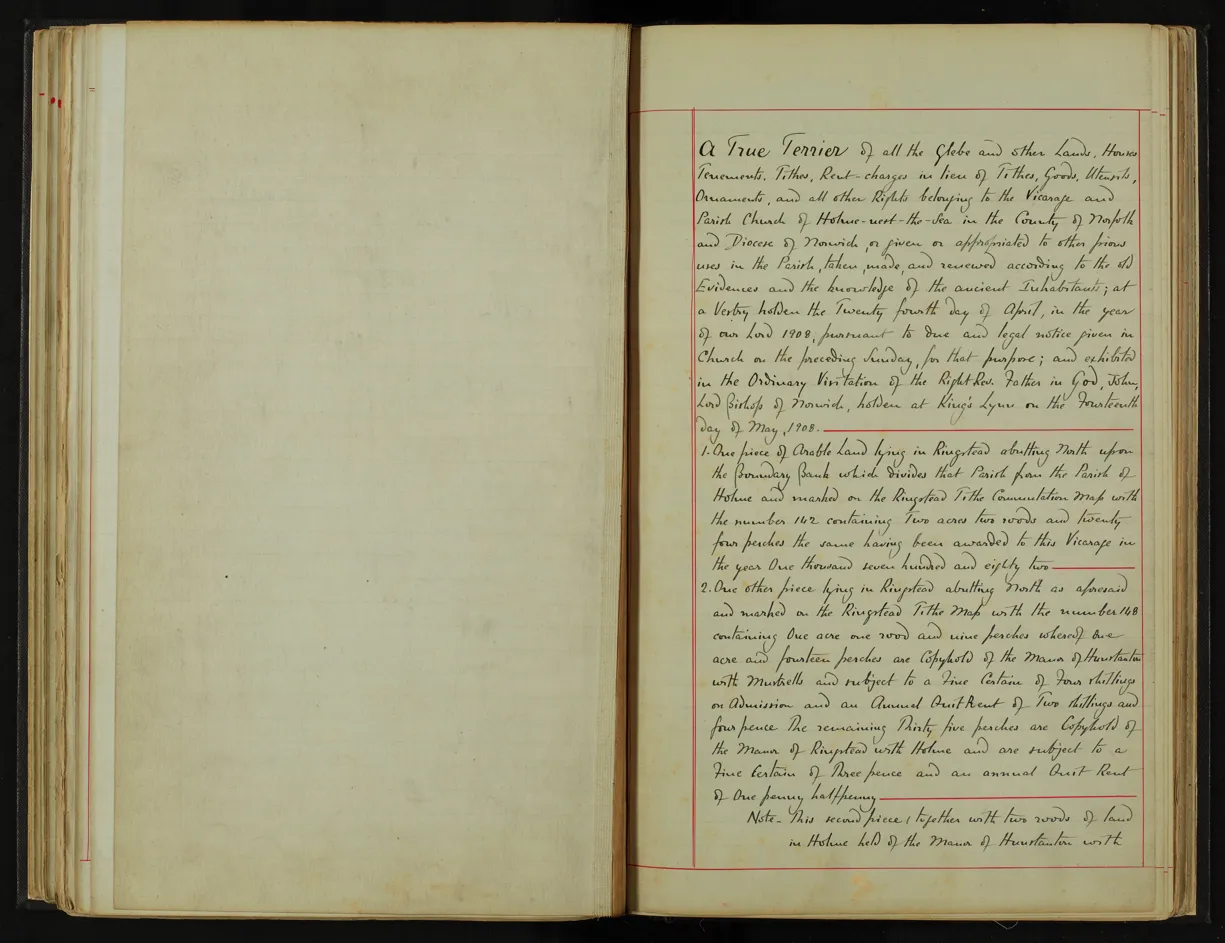 A True Terrier of all the Glebe and other Lands, Houses
Tenements, Tithes, Rent-charges in lieu of Tithes, Goods, Utensils,
Ornaments, and all other Rights belonging to the Vicarage and
Parish Church of Holme-next-the-Sea in the County of Norfolk
and Diocese of Norwich, or given or appropriated to other pious
uses in the Parish, taken, made, and renewed according to the old
Evidences and the knowledge of the ancient Inhabitants; at
a Vestry holden the Twenty fourth day of April, in the year
of our Lord 1908, pursuant to due and legal notice given in
Church on the preceding Sunday, for that purpose; and exhibited
in the Ordinary Visitation of the Right Rev. Father in God, John,
Lord Bishop of Norwich, holden at King's Lynn on the Fourteenth
day of May, 1908.
1. One piece of Arable Land lying in Ringstead abutting North upon
the Boundary Bank which divides that Parish from the Parish of
Holme and marked on the Ringstead Tithe Commutation Map with
the number 142 containing Two acres two roods and twenty
four perches the same having been awarded to this Vicarage in
the year One thousand seven hundred and eighty two
2. One other piece lying in Ringstead abutting North as aforesaid
and marked on the Ringstead Tithe Map with the number 148
containing One acre one rood and nine perches whereof one
acre and fourteen perches are Copyhold of the Manor of Hunstanton
with Mustrells and subject to a Fine Certain of Four shillings
on Admission and an Annual Quit Rent of Two shillings and
four pence The remaining Thirty five perches are Copyhold of
the Manor of Ringstead with Holme and are subject to a
Fine Certain of Three pence and an annual Quit Rent
of One penny halfpenny
Note - This second piece, together with two roods of land
in Holme held of the Manor of Hunstanton with